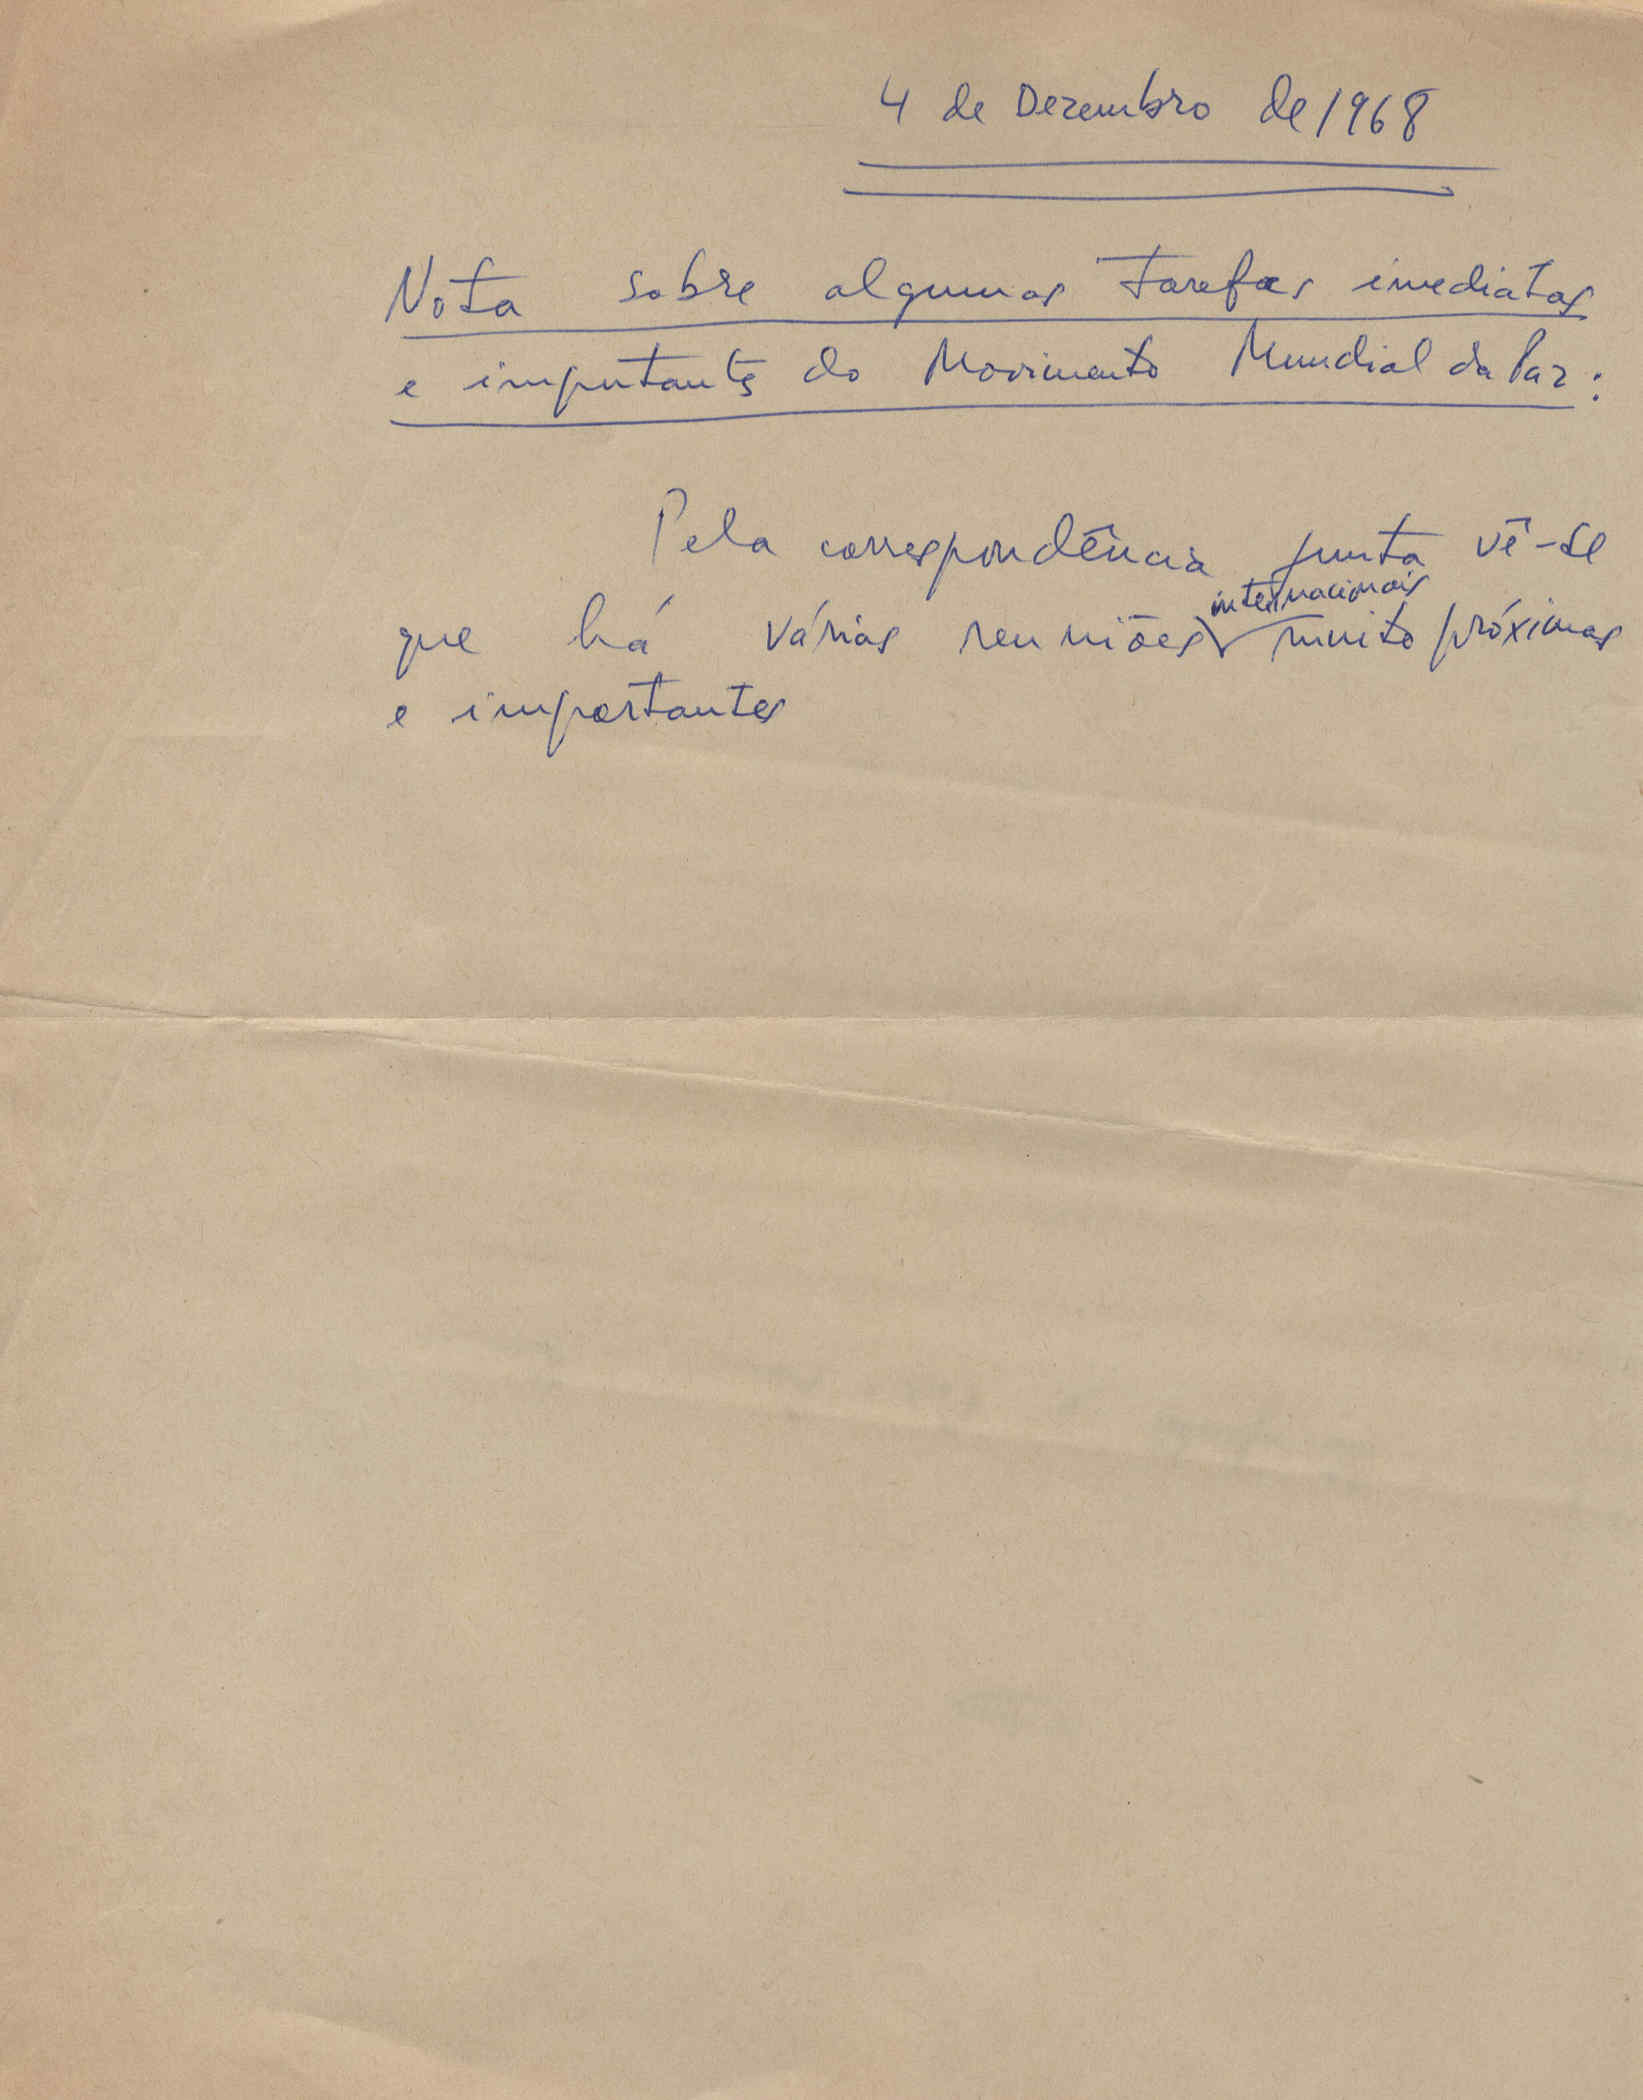 4 de Dezembro de 1968
Nota sobre algumas tarefas imediatas
e importantes do Movimento Mundial da Paz:
Pela correspondência junta vê-se
internacionais
que há várias reuniões muito próximas
e importantes